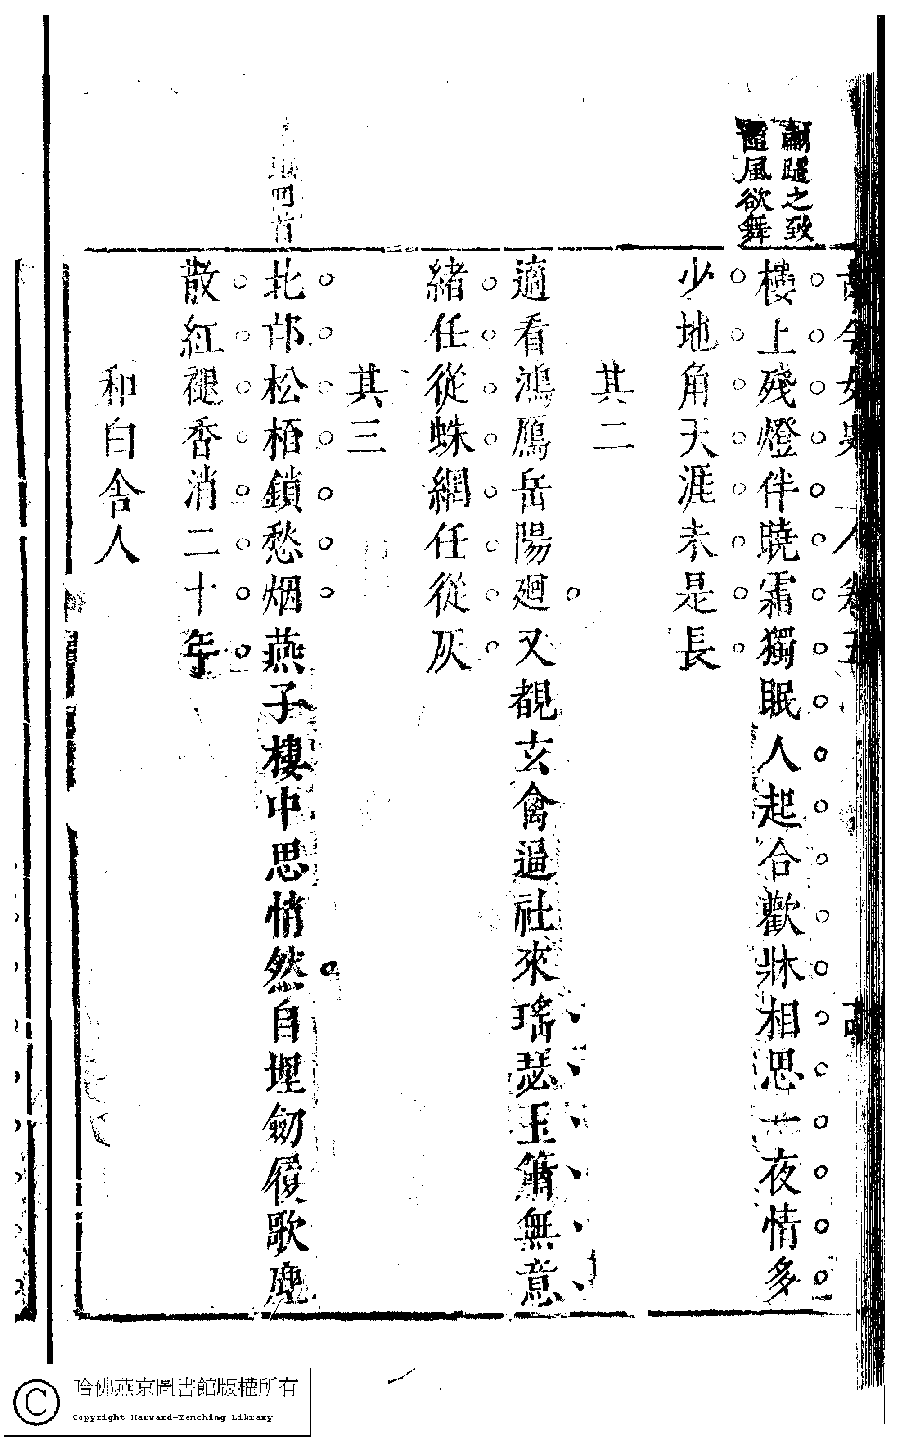 翩躚之致
當風欲舞
樓上殘燈伴曉霜獨眠人起合歡牀相思一夜情多
少地角天涯未是長
其二
適看鴻鴈岳陽廻又覩玄禽逼社來瑤瑟玉簫無意
緒任從蛛網任從灰
其三
四首
北邙松栢鎖愁烟燕子樓中思悄然自埋劒履歌塵
散紅褪香消二十年
和白舍人
哈佛燕京圖書館版權所有
Copyright Harvard-Yenching Library